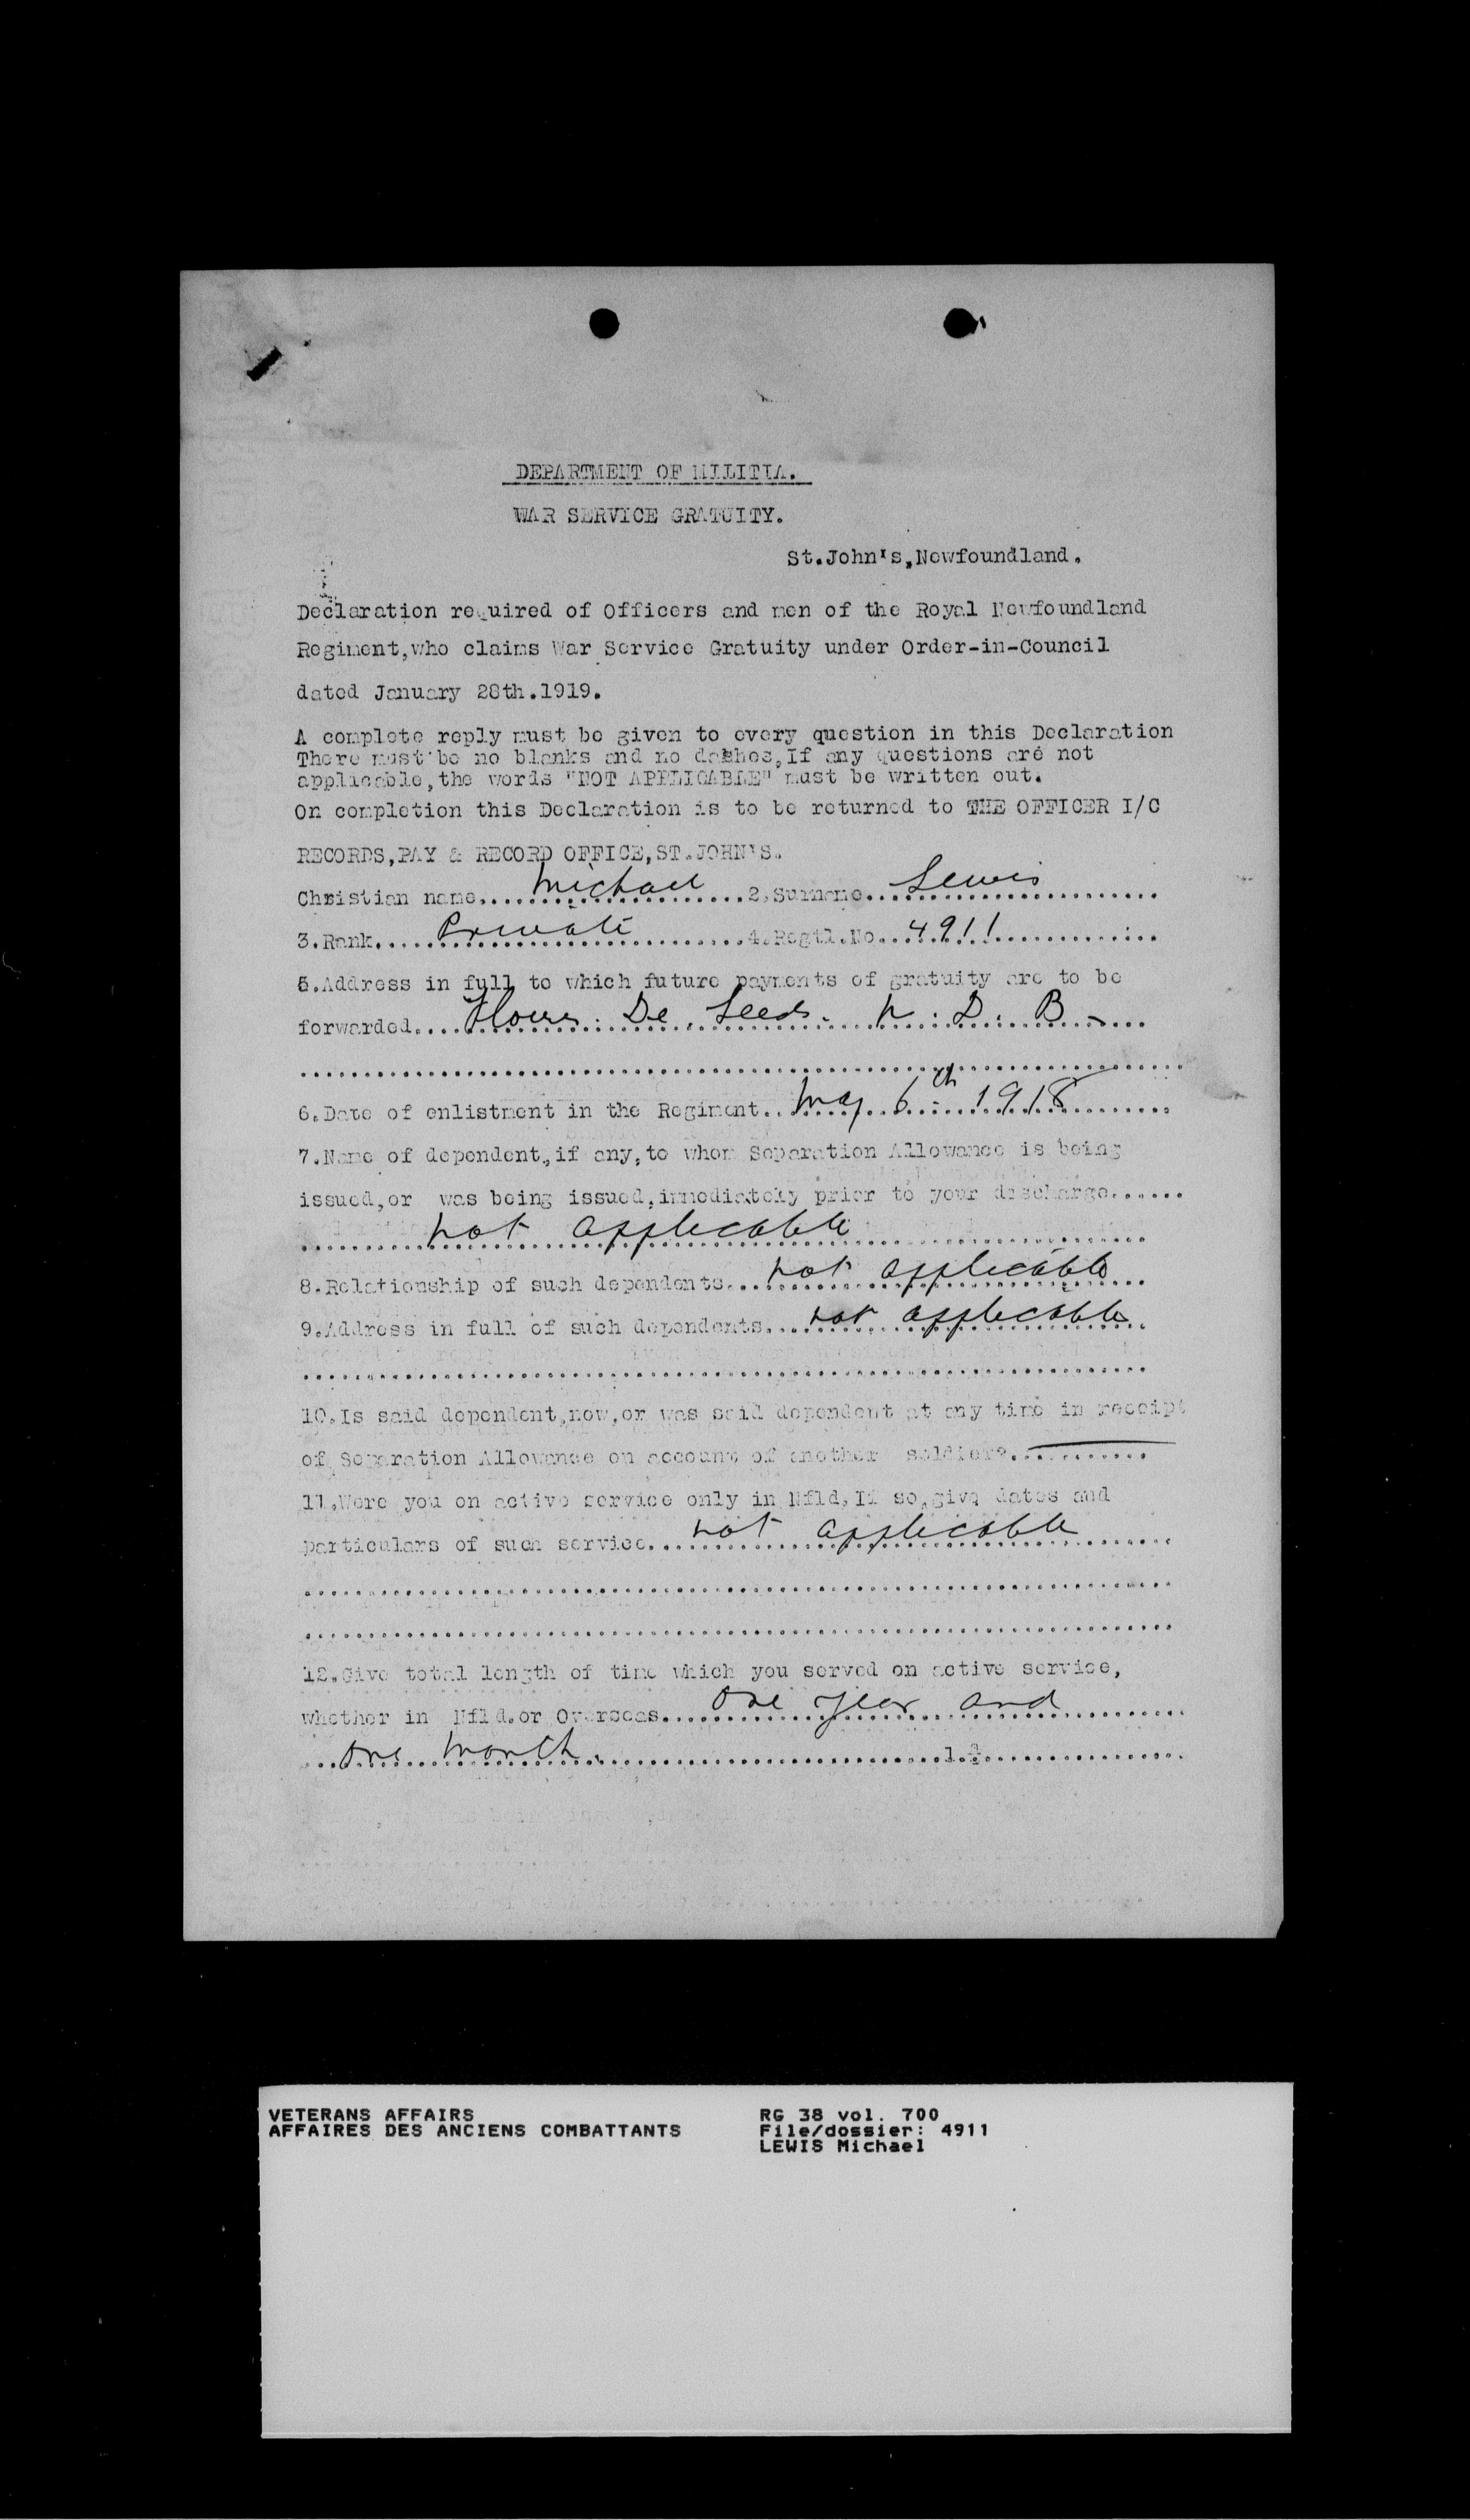 DEPARTMENT OF MILITIA.
WAR SERVICE GRATUITY.
St.John's,Newfoundland.
Declaration required of Officers and men of the Royal Newfoundland
Regiment,who claims War Service Gratuity under Order-in-Council
dated January 28th.1919.
A complete reply must be given to every question in this Declaration
There must be no blanks and no dashes,If any questions are not
applicable,the words "NOT APPLICABLE" must be written out.
On completion this Declaration is to be returned to THE OFFICER I/C
RECORDS,PAY & RECORD OFFICE,ST.JOHN'S.
Christian name....Michael....2.Surname....Lewis....
3.Rank....Private....4.Regtl.No...4911....
5.Address in full to which future payments of gratuity are to be
forwarded.... De Leeds. N. D. B....
6.Date of enlistment in the Regiment..May 6th 1918....
7.Name of dependent,if any,to whom Separation Allowance is being
issued,or was being issued,immediately prior to your discharge......
....not applicable....
8.Relationship of such dependents...not applicable...
9.Address in full of such dependents....not applicable..
10.Is said dependent,now,or was said dependent at any time in receipt
of Separation Allowance on account of another soldier?............
11.Were you on active service only in Nfld,If so,give dates and
particulars of such service...not applicable......
12.Give total length of time which you served on active service,
whether in Nfld.or Overseas....one year and....
...one month....
VETERANS AFFAIRS
AFFAIRES DES ANCIENS COMBATTANTS
RG 38 vol. 700
File/dossier: 4911
LEWIS Michael